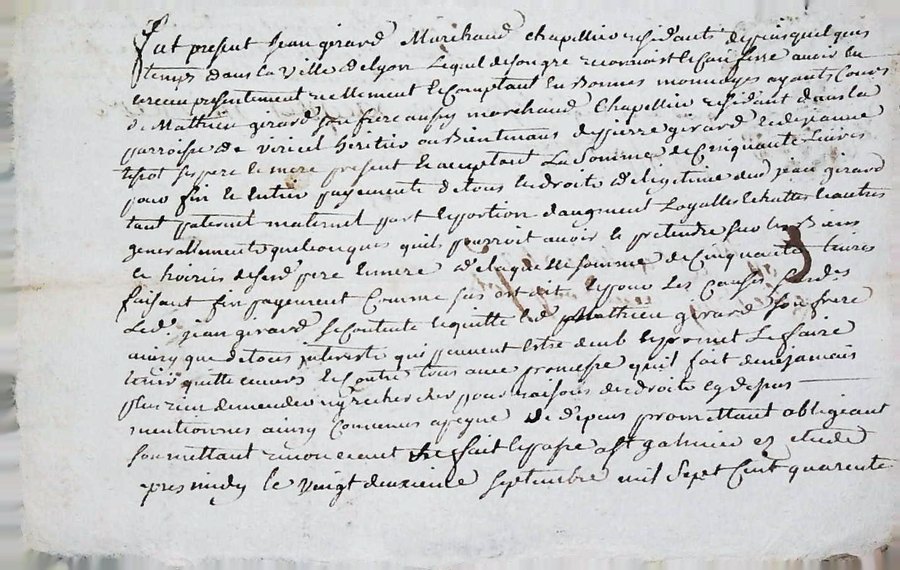 Fut present Jean girard Marchand chapellier residant depuis quelques
temps dans la ville de lyon lequel de son gre reconnoit et Confesse avoir eu
et receu presentement reellement et Comptant en Bonnes monnoyes ayants Cours
de Mathieu girard son frere aussy marchand Chapellier residant dans la
parroisse de viricel heritier ou Bientenant de pierre girard et de jeanne
tipot ses pere et mere present et acceptant La Somme de Cinquante Livres
pour fin et entier payement de tous les droits de legitime dud jean girard
tant paternel maternel part et portion d'augment Loyalles echuttes et autres
generallement quelconques quil pourroit avoir et pretendre sur les Biens
et hoiries desd pere et mere de laquelle somme de Cinquante livres
faisant fin payement Comme sus est dit et pour les Causes sus des
Led. jean girard se Contente et quitte led Mathieu girard son frere
ainsy que de tous interests qui peuvent estre deub et promet Le faire
tenir quitte envers et Contre tous avec promesse quil fait de ne jamais
plus rien demender ny rechercher pour raisons des droits cy depus
mentionnes ainsy Convenus a peyne de depens promettant obligeant
soumettant renonceant fait et passe a st galmier ez etude
apres midy le vingt deuxieme septembre mil Sept Cent quarente